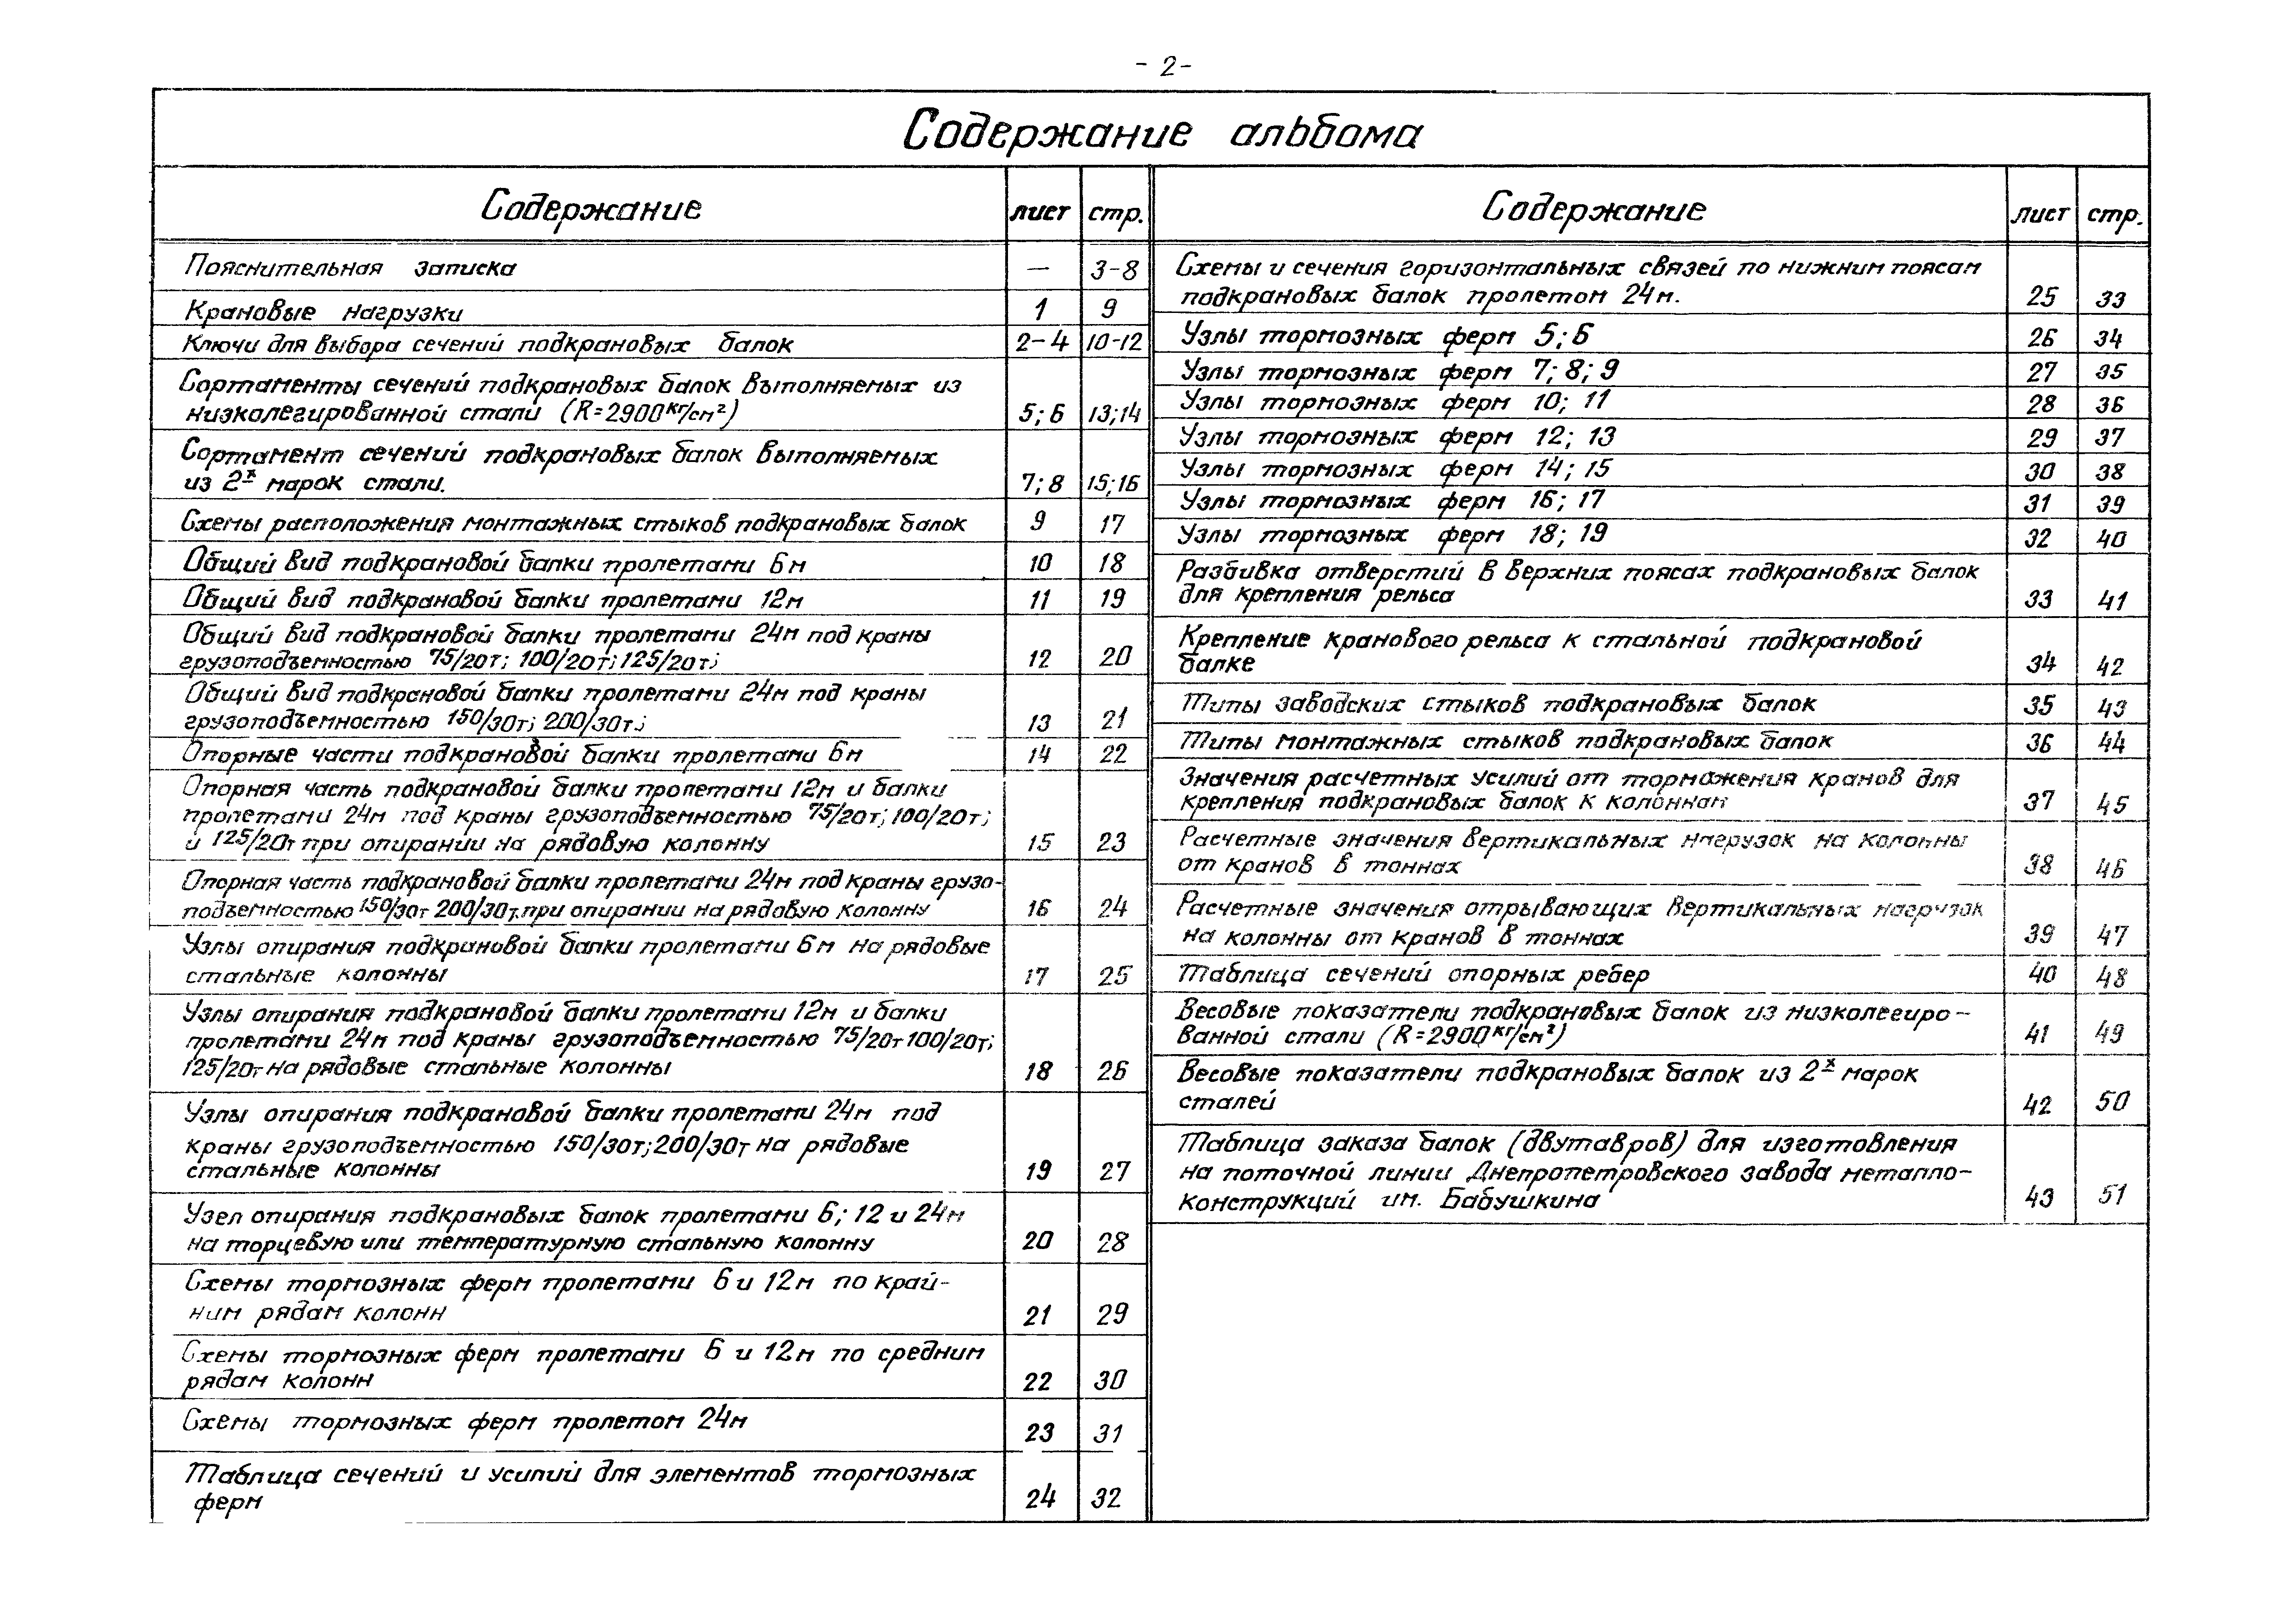 - 2 -
Содержание альбома
Содержание лист стр.
Пояснительная записка — 3-8
Крановые нагрузки 1 9
Ключи для выбора сечений подкрановых балок 2-4 10-12
Сортаменты сечений подкрановых балок выполняемых из
низколегированной стали (R=2900кг/см²) 5; 6 13;14
Сортамент сечений подкрановых балок выполняемых
из 2х марок стали. 7; 8 15;16
Схемы расположения монтажных стыков подкрановых балок 9 17
Общий вид подкрановой балки пролетами 6м 10 18
Общий вид подкрановой балки пролетами 12м 11 19
Общий вид подкрановой балки пролетами 24м под краны
грузоподъемностью 75/20т; 100/20т; 125/20т; 12 20
Общий вид подкрановой балки пролетами 24м под краны
грузоподъемностью 150/30т; 200/30т.; 13 21
Опорные части подкрановой балки пролетами 6м 14 22
Опорная часть подкрановой балки пролетами 12м и балки
пролетами 24м под краны грузоподъемностью 75/20т; 100/20т;
и 125/20т при опирании на рядовую колонну 15 23
Опорная часть подкрановой балки пролетами 24м под краны грузо-
подъемностью 150/30т 200/30т. при опирании на рядовую колонну 16 24
Узлы опирания подкрановой балки пролетами 6м на рядовые
стальные колонны 17 25
Узлы опирания подкрановой балки пролетами 12м и балки
пролетами 24м под краны грузоподъемностью 75/20т 100/20т;
125/20т на рядовые стальные колонны 18 26
Узлы опирания подкрановой балки пролетами 24м под
краны грузоподъемностью 150/30т; 200/30т на рядовые
стальные колонны 19 27
Узел опирания подкрановых балок пролетами 6; 12 и 24м
на торцевую или температурную стальную колонну 20 28
Схемы тормозных ферм пролетами 6 и 12м по край-
ним рядам колонн 21 29
Схемы тормозных ферм пролетами 6 и 12м по средним
рядам колонн 22 30
Схемы тормозных ферм пролетом 24м 23 31
Таблица сечений и усилий для элементов тормозных
ферм 24 32
Содержание лист стр.
Схемы и сечения горизонтальных связей по нижним поясам
подкрановых балок пролетом 24м. 25 33
Узлы тормозных ферм 5; 6 26 34
Узлы тормозных ферм 7; 8; 9 27 35
Узлы тормозных ферм 10; 11 28 36
Узлы тормозных ферм 12; 13 29 37
Узлы тормозных ферм 14; 15 30 38
Узлы тормозных ферм 16; 17 31 39
Узлы тормозных ферм 18; 19 32 40
Разбивка отверстий в верхних поясах подкрановых балок
для крепления рельса 33 41
Крепление кранового рельса к стальной подкрановой
балке 34 42
Типы заводских стыков подкрановых балок 35 43
Типы монтажных стыков подкрановых балок 36 44
Значения расчетных усилий от торможения кранов для
крепления подкрановых балок к колоннам 37 45
Расчетные значения вертикальных нагрузок на колонны
от кранов в тоннах 38 46
Расчетные значения отрывающих вертикальных нагрузок
на колонны от кранов в тоннах 39 47
Таблица сечений опорных ребер 40 48
Весовые показатели подкрановых балок из низколегиро-
ванной стали (R=2900кг/см²) 41 49
Весовые показатели подкрановых балок из 2х марок
сталей 42 50
Таблица заказа балок (двутавров) для изготовления
на поточной линии Днепропетровского завода металло-
конструкций им. Бабушкина 43 51